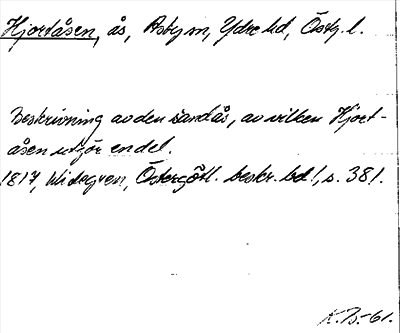 Hjortåsen, ås, Asby sn, Ydre hd, Östg. l.
Beskrivning av den sandås, av vilken Hjort-
åsen utgör en del.
1817, Widegren, Östergötl. beskr. bd 1, s. 381.
K. B. -61.